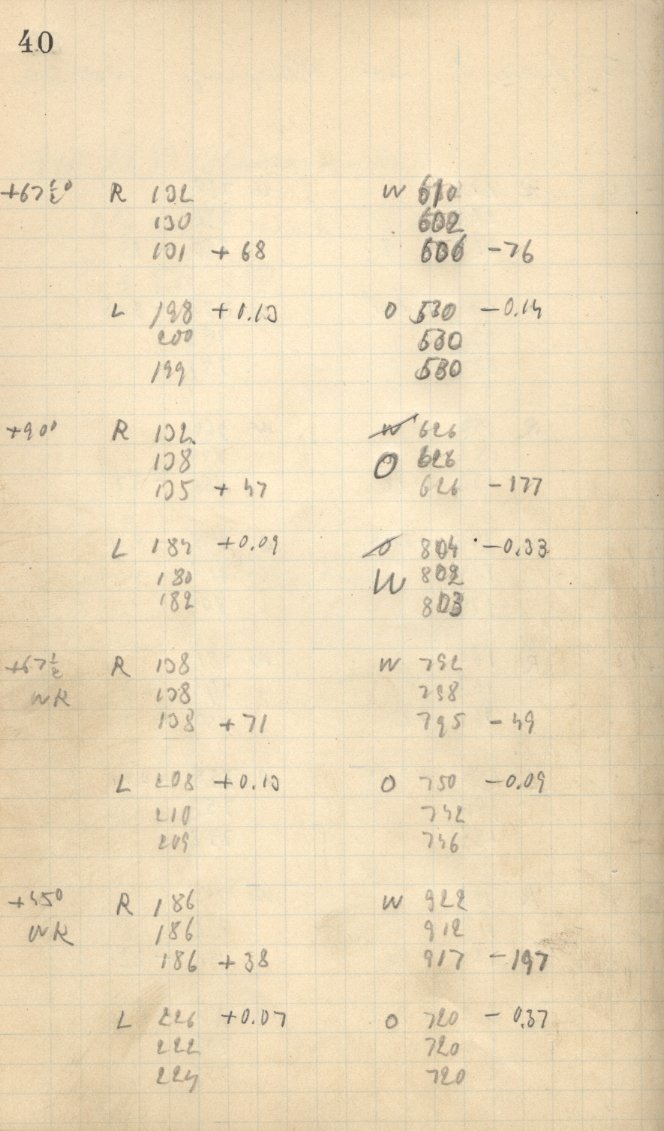 40
+67½° R 132 W 610
130 602
131 +68 606 -76
L 198 +0.13 O 530 -0.14
200 530
199 530
+90° R 132 W 626
138 O 626
135 +47 626 -177
L 184 +0.09 O 804 -0.33
180 W 802
182 803
+67½ R 138 W 792
WR 138 798
138 +71 795 -49
L 208 +0.13 O 750 -0.09
210 742
209 746
+45° R 186 W 922
WR 186 912
186 +38 917 -197
L 226 +0.07 O 720 -0.37
222 720
224 720